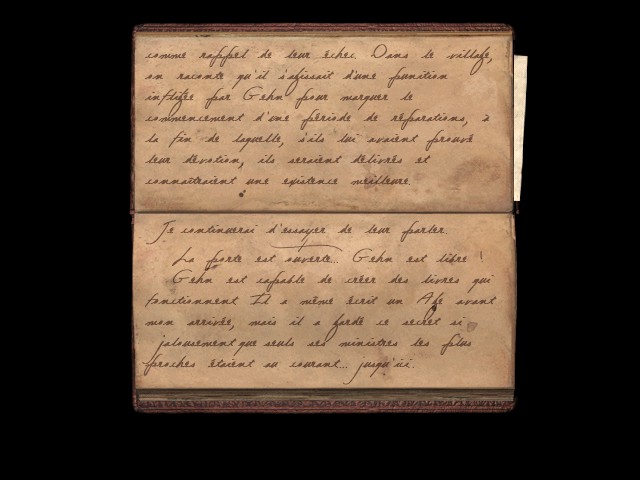 comme rappel de leur échec. Dans le village,
on raconte qu'il s'agissait d'une punition
infligée par Gehn pour marquer le
commencement d'une période de réparations, à
la fin de laquelle, s'ils lui avaient prouvé
leur dévotion, ils seraient délivrés et
connaîtraient une existence meilleure.
Je continuerai d'essayer de leur parler.
La porte est ouverte... Gehn est libre !
Gehn est capable de créer des livres qui
fonctionnent. Il a même écrit un Age avant
mon arrivée, mais il a gardé ce secret si
jalousement que seuls ses ministres les plus
proches étaient au courant... jusqu'ici.